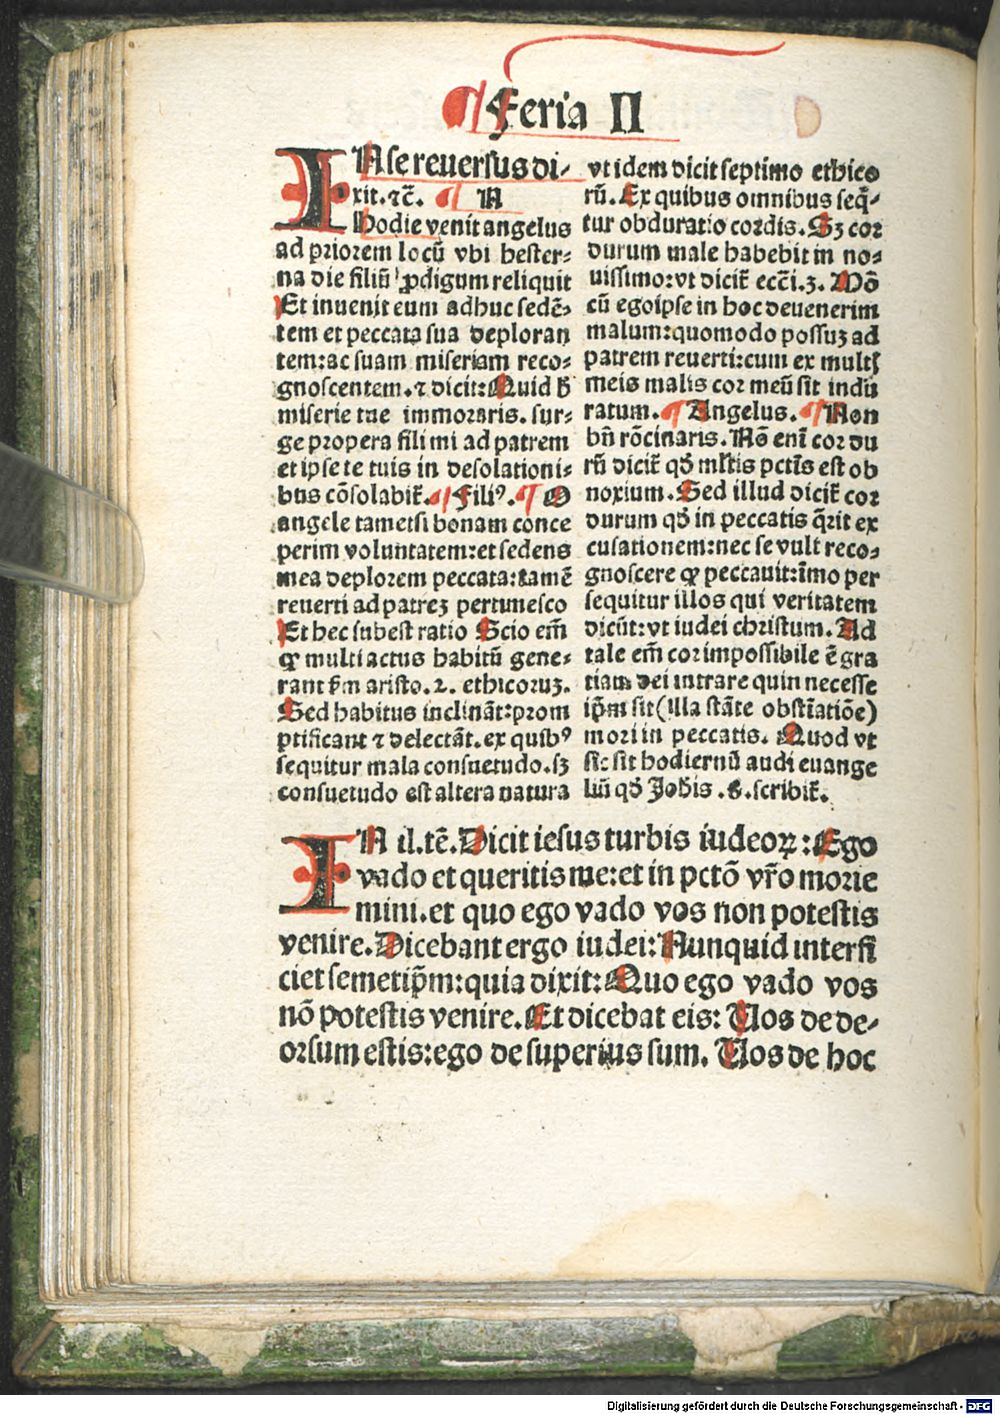 Feria II
IN se reuersus di-
xit. ⁊c̄. ¶ N
Hodie venit angelus
ad priorem locū vbi hester-
na die filiū ꝓdigum reliquit
Et inuenit eum adhuc sedē-
tem et peccata sua deploran
tem: ac suam miseriam reco-
gnoscentem. ⁊ dicit: Quid h̄
miserie tue immoraris. sur-
ge propera fili mi ad patrem
et ipse te tuis in desolationi-
bus cōsolabit̄. ¶ Filiꝰ. ¶ O
angele tametsi bonam conce
perim voluntatem: et sedens
mea deplorem peccata: tamē
reuerti ad patreꝫ pertimesco
Et hec subest ratio Scio em̄
ꝙ multi actus habitū gene-
rant ẜm aristo. 2. ethicoruꝫ.
Sed habitus inclināt: prom
ptificant ⁊ delectāt. ex quibꝰ
sequitur mala consuetudo. sꝫ
consuetudo est altera natura
vt idem dicit septimo ethico
rū. Ex quibus omnibus seq̄-
tur obduratio cordis. Sꝫ cor
durum male habebit in no-
uissimo: vt dicit̄ ecc̄i. 3. Mō
cū ego ipse in hoc deuenerim
malum: quomodo possuꝫ ad
patrem reuerti: cum ex multꝭ
meis malis cor meū sit indu
ratum. ¶ Angelus. ¶ Non
bn̄ rōcinaris. Nō eni cor du
rū dicit̄ qđ ml̄tis pctīs est ob
noxium. Sed illud dicit̄ cor
durum qđ in peccatis q̄rit ex
cusationem: nec se vult reco-
gnoscere ꝙ peccauit: īmo per
sequitur illos qui veritatem
dicūt: vt iudei christum. Ad
tale em̄ cor impossibile ē gra
tiam dei intrare quin necesse
ip̄m sit (illa stāte obstīatiōe)
mori in peccatis. Quod vt
sic sit hodiernū audi euange
liū qđ Joh̄is .8. scribit̄.
IN il. tē. Dicit iesus turbis iudeoꝝ: Ego
vado et queritis me: et in pctō vr̄o morie
mini. et quo ego vado vos non potestis
venire. Dicebant ergo iudei: Nunquid interfi
ciet semetip̄m: quia dixit: Quo ego vado vos
nō potestis venire. Et dicebat eis: Uos de de-
orsum estis: ego de superius sum. Uos de hoc
Digitalisierung gefördert durch die Deutsche Forschungsgemeinschaft - DFG